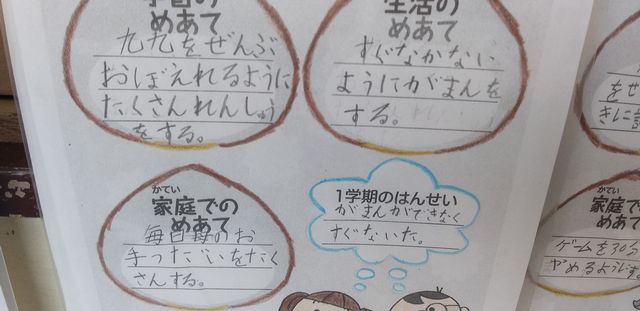 学習の
めあて
九九をぜんぶ
おぼえれるように
たくさんれんしゅう
をする。
生活の
めあて
すぐなかない
ようにがまんを
する。
かてい
家庭での
めあて
毎日母のお
手つだいをたく
さんする。
1学期のはんせい
がまんができなく
すぐないた。
をぜ
きに
かてい
家庭
めあ
ゲームを30分
やめるように